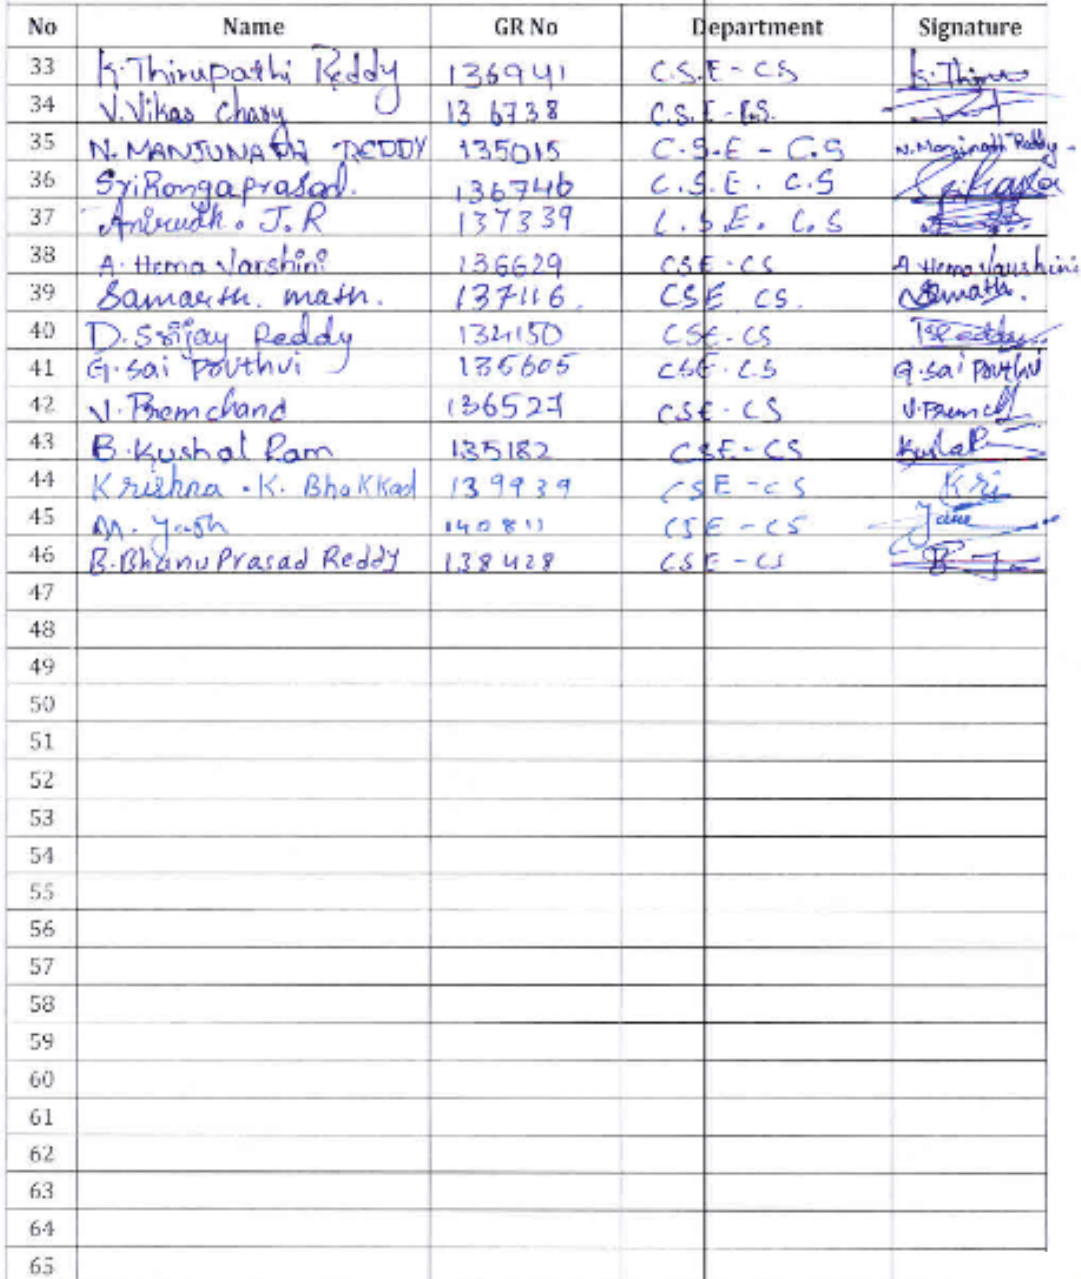 No Name GR No Department Signature
33 K. Thirupathi Reddy 136941 C.S.E - CS K. Thiru
34 V. Vikas Chary 136738 C.S.E - C.S.
35 N. MANJUNATH REDDY 135015 C.S.E - C.S N. Manjunath Reddy
36 SriRangaprasad. 136746 C.S.E. C.S
37 Anirudh. J.R 137339 C.S.E. C.S
38 A. Hema Varshini 136629 CSE - CS A Hema Varshini
39 Samarth. math. 137116. CSE CS.
40 D. Srijay Reddy 134150 CSE - CS
41 G. Sai Pruthvi 136605 CSE - CS G. Sai Pruthvi
42 V. Premchand 136527 CSE - CS V. Premch
43 B. Kushal Ram 135182 CSE - CS
44 Krishna . K. Bhakkad 139939 CSE - CS Kri
45 M. Yash 140811 CSE - CS
46 B. Bhanu Prasad Reddy 138428 CSE - CS
47
48
49
50
51
52
53
54
55
56
57
58
59
60
61
62
63
64
65